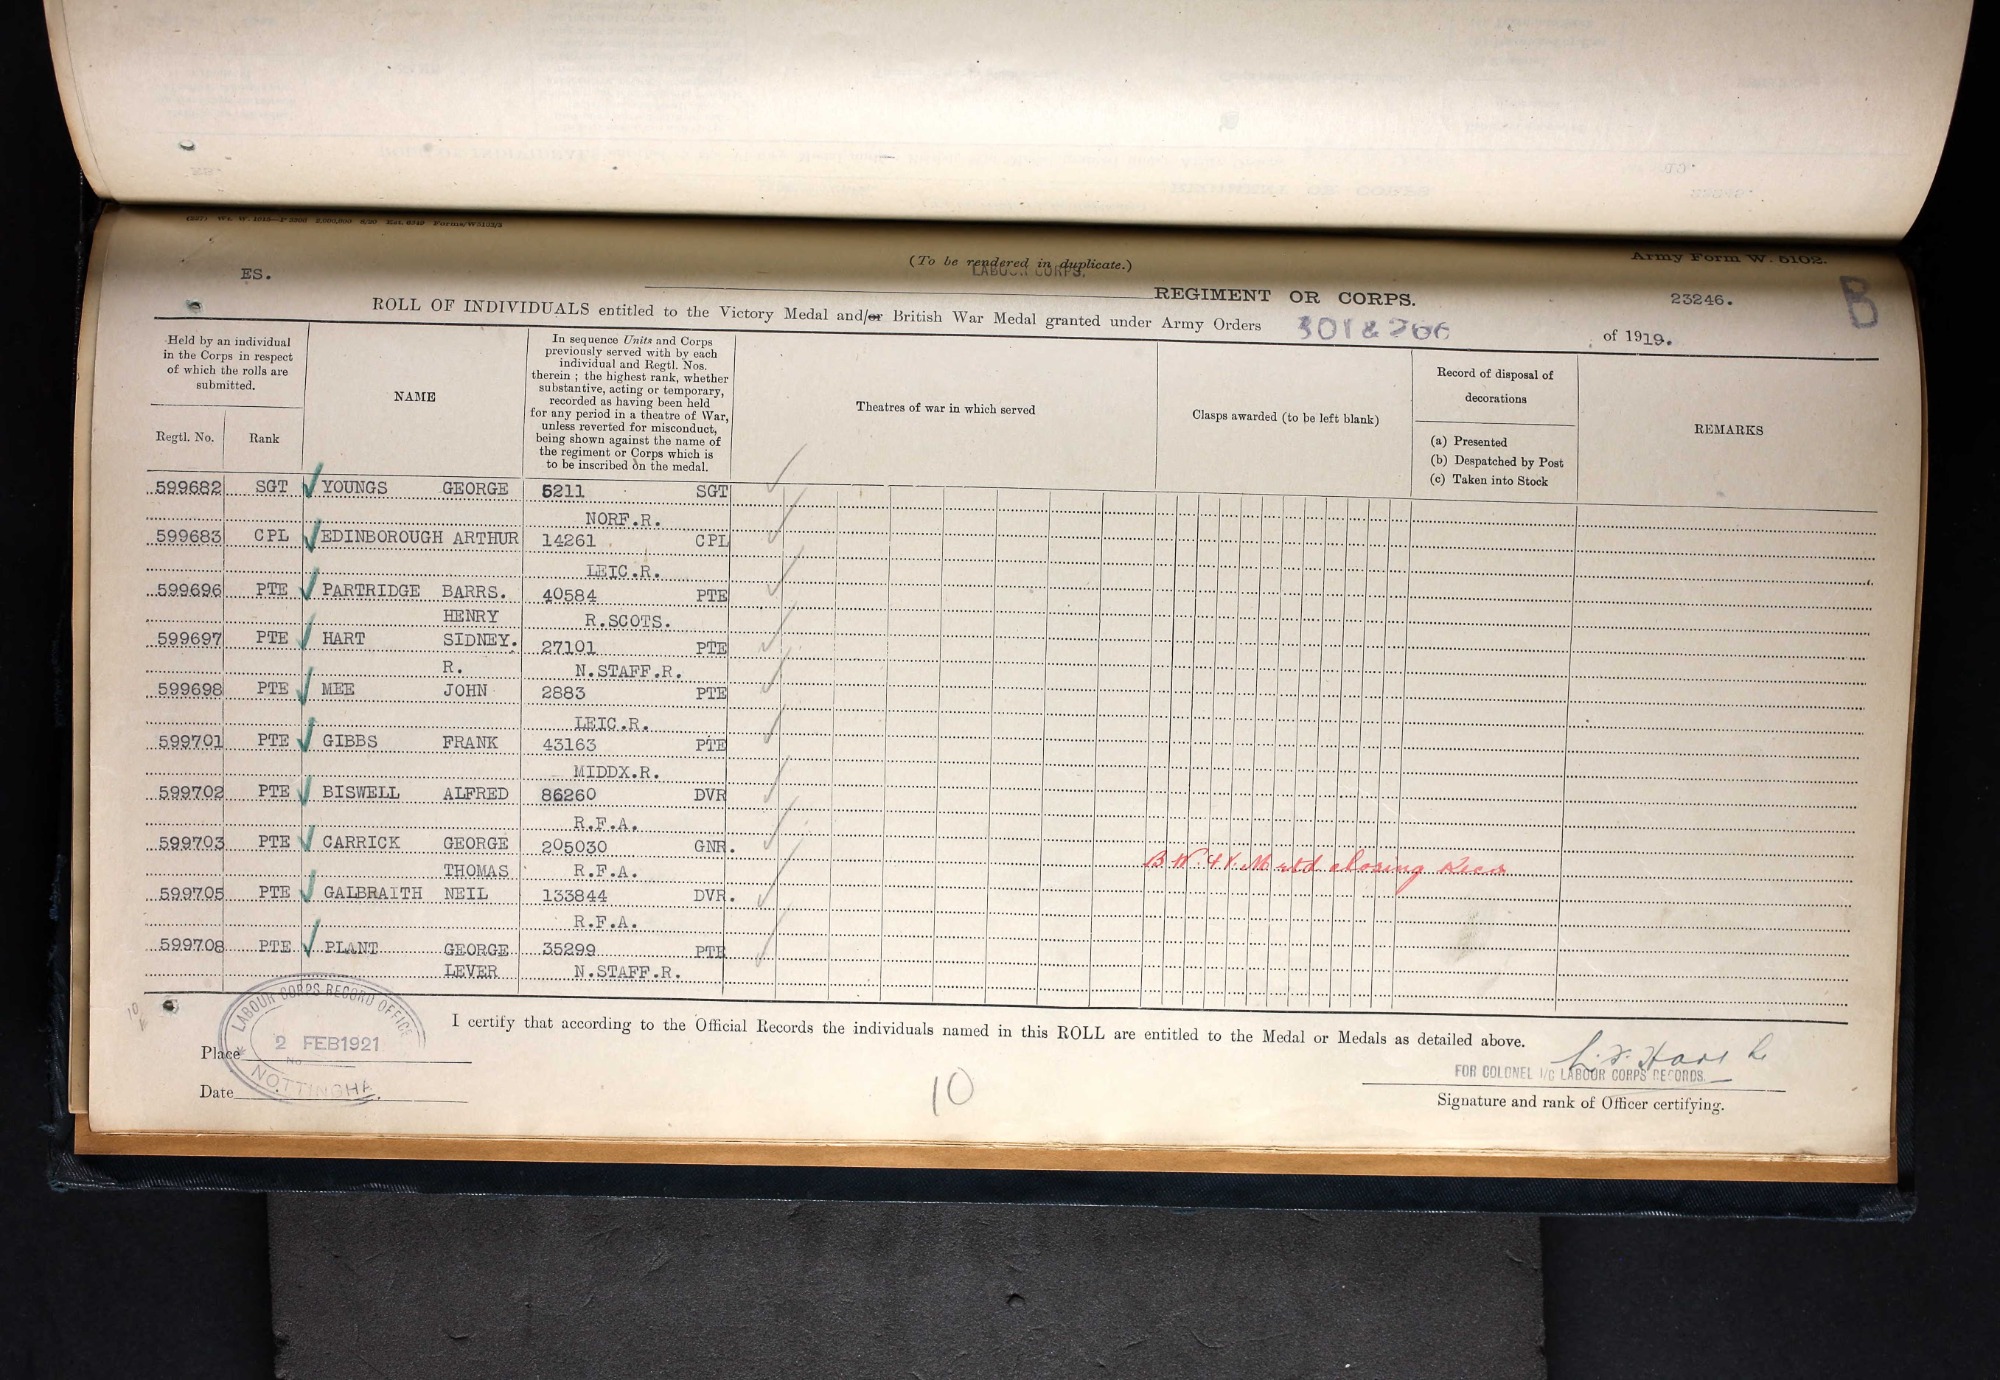 (To be rendered in duplicate.)
Army Form W. 5102.
ES.
LABOUR CORPS.
REGIMENT OR CORPS.
23246.
B
ROLL OF INDIVIDUALS entitled to the Victory Medal and/or British War Medal granted under Army Orders 301 & 266 of 1919.
Held by an individual
in the Corps in respect
of which the rolls are
submitted.
Regtl. No.
Rank
NAME
In sequence Units and Corps
previously served with by each
individual and Regtl. Nos.
therein ; the highest rank, whether
substantive, acting or temporary,
recorded as having been held
for any period in a theatre of War,
unless reverted for misconduct,
being shown against the name of
the regiment or Corps which is
to be inscribed on the medal.
Theatres of war in which served
Clasps awarded (to be left blank)
Record of disposal of
decorations
(a) Presented
(b) Despatched by Post
(c) Taken into Stock
REMARKS
599682 SGT YOUNGS GEORGE 5211 SGT
NORF.R.
599683 CPL EDINBOROUGH ARTHUR 14261 CPL
LEIC.R.
599696 PTE PARTRIDGE BARRS. 40584 PTE
HENRY R.SCOTS.
599697 PTE HART SIDNEY. 27101 PTE
R. N.STAFF.R.
599698 PTE MEE JOHN 2883 PTE
LEIC.R.
599701 PTE GIBBS FRANK 43163 PTE
MIDDX.R.
599702 PTE BISWELL ALFRED 86260 DVR
R.F.A.
599703 PTE CARRICK GEORGE 205030 GNR.
THOMAS R.F.A.
B.W. & V. M rtd closing
599705 PTE GALBRAITH NEIL 133844 DVR.
R.F.A.
599708 PTE PLANT GEORGE 35299 PTE
LEVER N.STAFF.R.
I certify that according to the Official Records the individuals named in this ROLL are entitled to the Medal or Medals as detailed above.
LABOUR CORPS RECORD OFFICE
2 FEB 1921
No
NOTTINGHA.
Place
Date
10
FOR COLONEL I/C LABOUR CORPS RECORDS.
Signature and rank of Officer certifying.